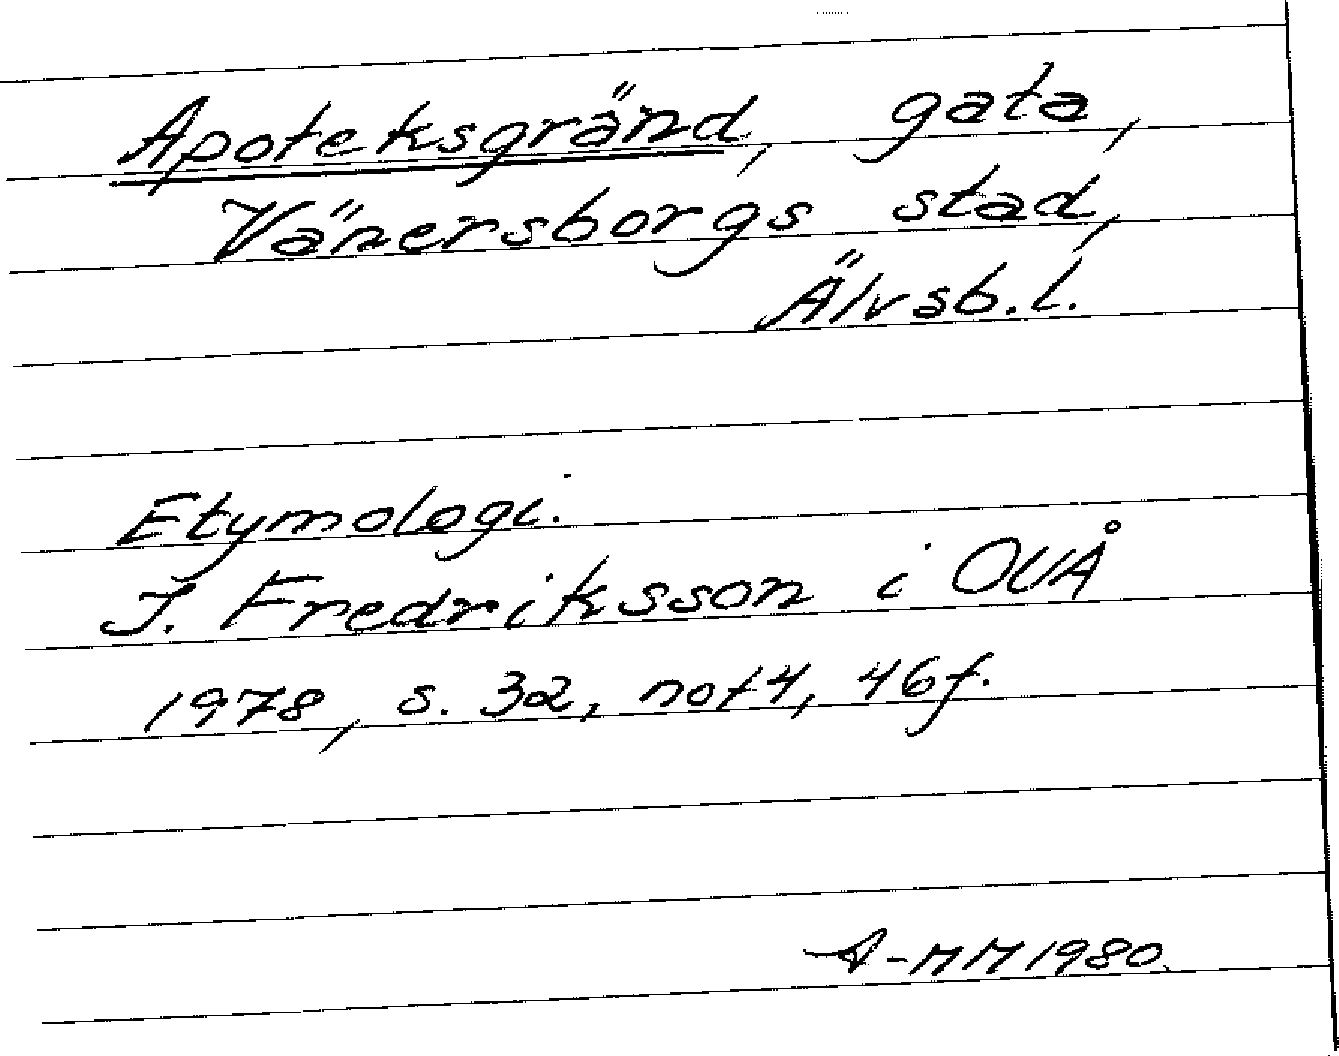 Apoteksgränd, gata,
Vänersborgs stad,
Älvsb. l.
Etymologi.
I. Fredriksson i OUÅ
1978, s. 32, not 4, 46 f.
A-MM 1980.